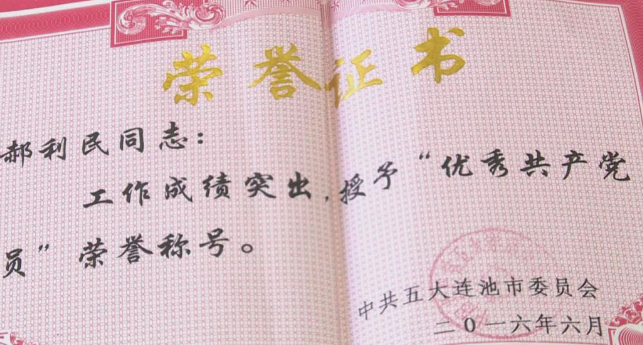 荣誉证书
郝利民同志：
工作成绩突出，授予“优秀共产党
员”荣誉称号。
中共五大连池市委员会
二〇一六年六月